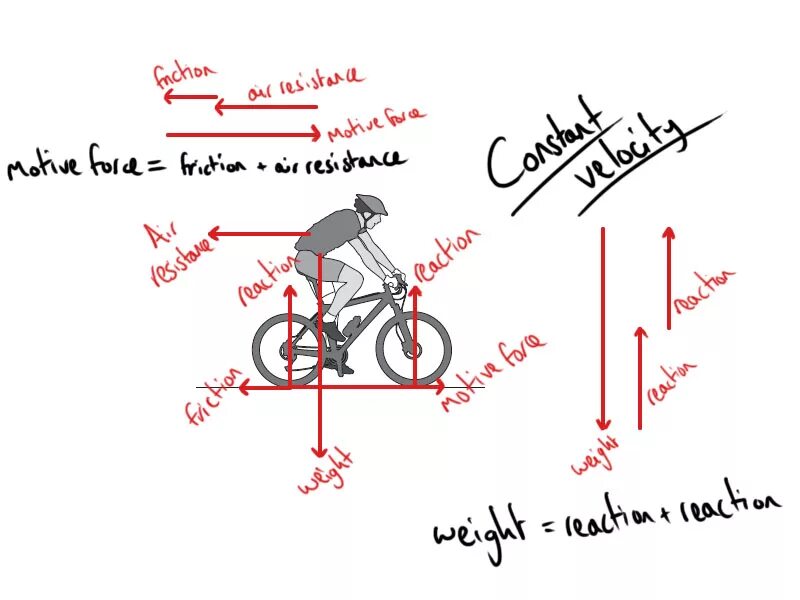 friction
air resistance
Motive force
Motive force = friction + air resistance
Constant
velocity
Air
resistance
reaction
reaction
friction
Motive force
weight
reaction
reaction
weight
weight = reaction + reaction